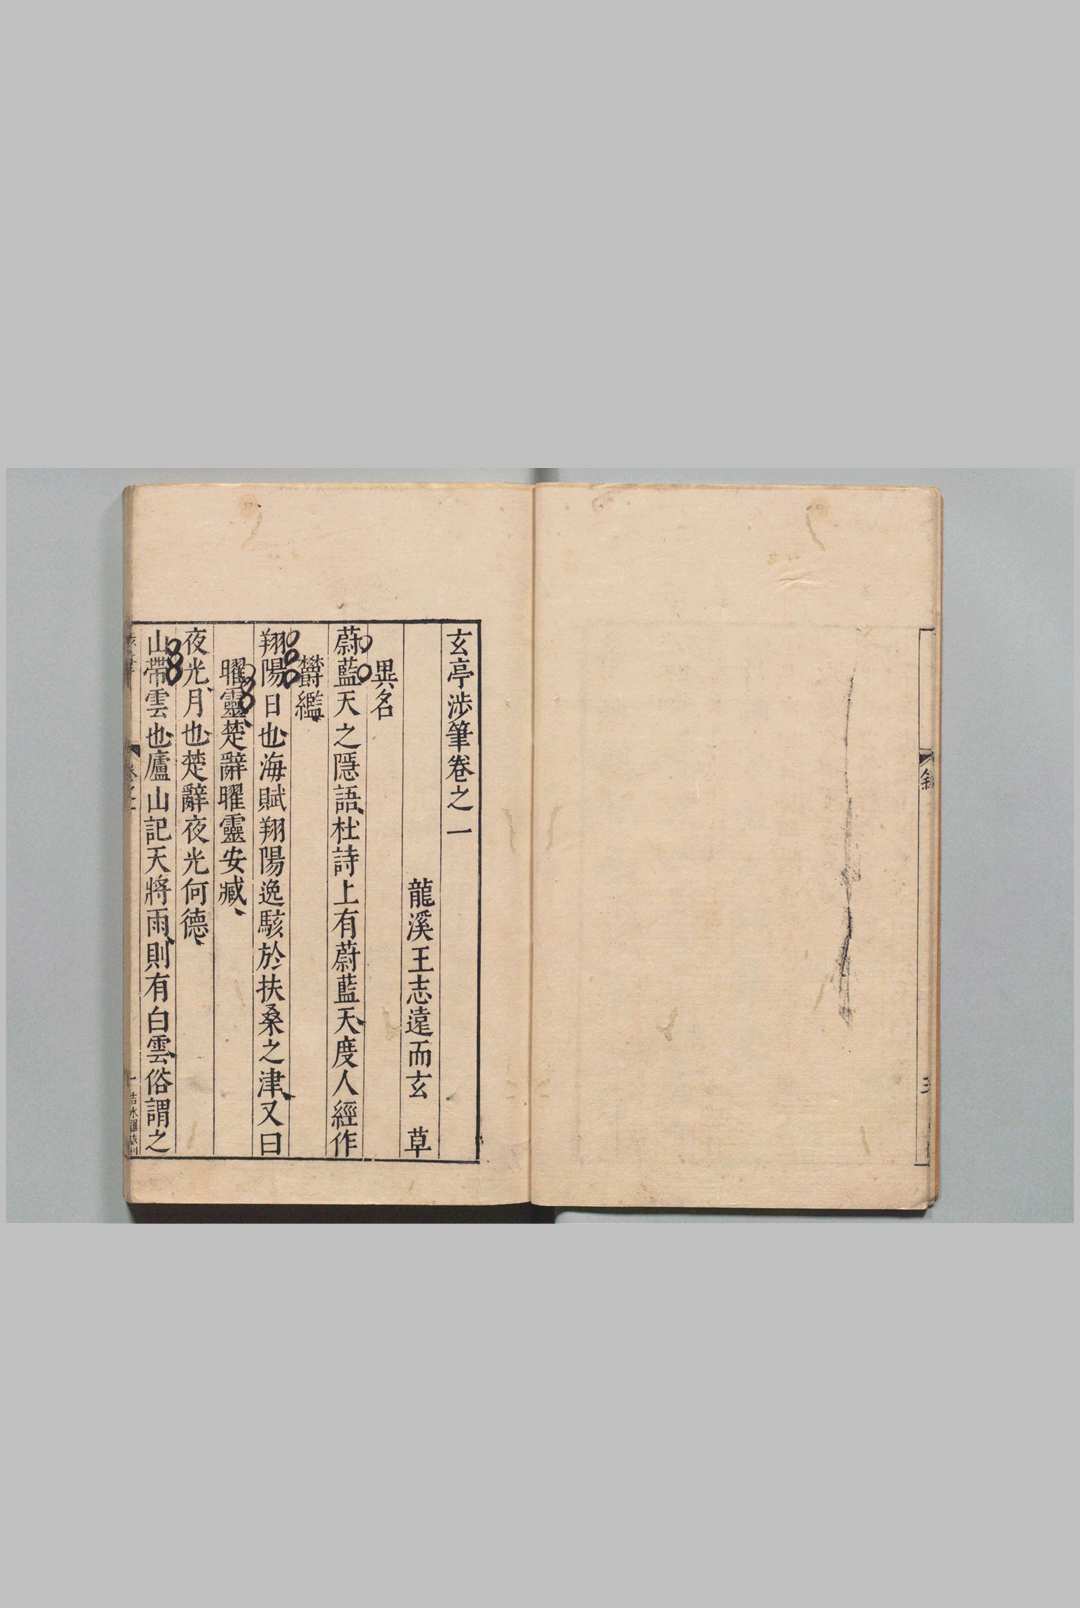 玄亭涉筆卷之一
龍溪王志遠而玄 草
異名
蔚藍天之隱語杜詩上有蔚藍天度人經作
欝繿
翔陽日也海賦翔陽逸駭於扶桑之津又曰
曜靈楚辭曜靈安臧
夜光月也楚辭夜光何德
山帶雲也廬山記天將雨則有白雲俗謂之